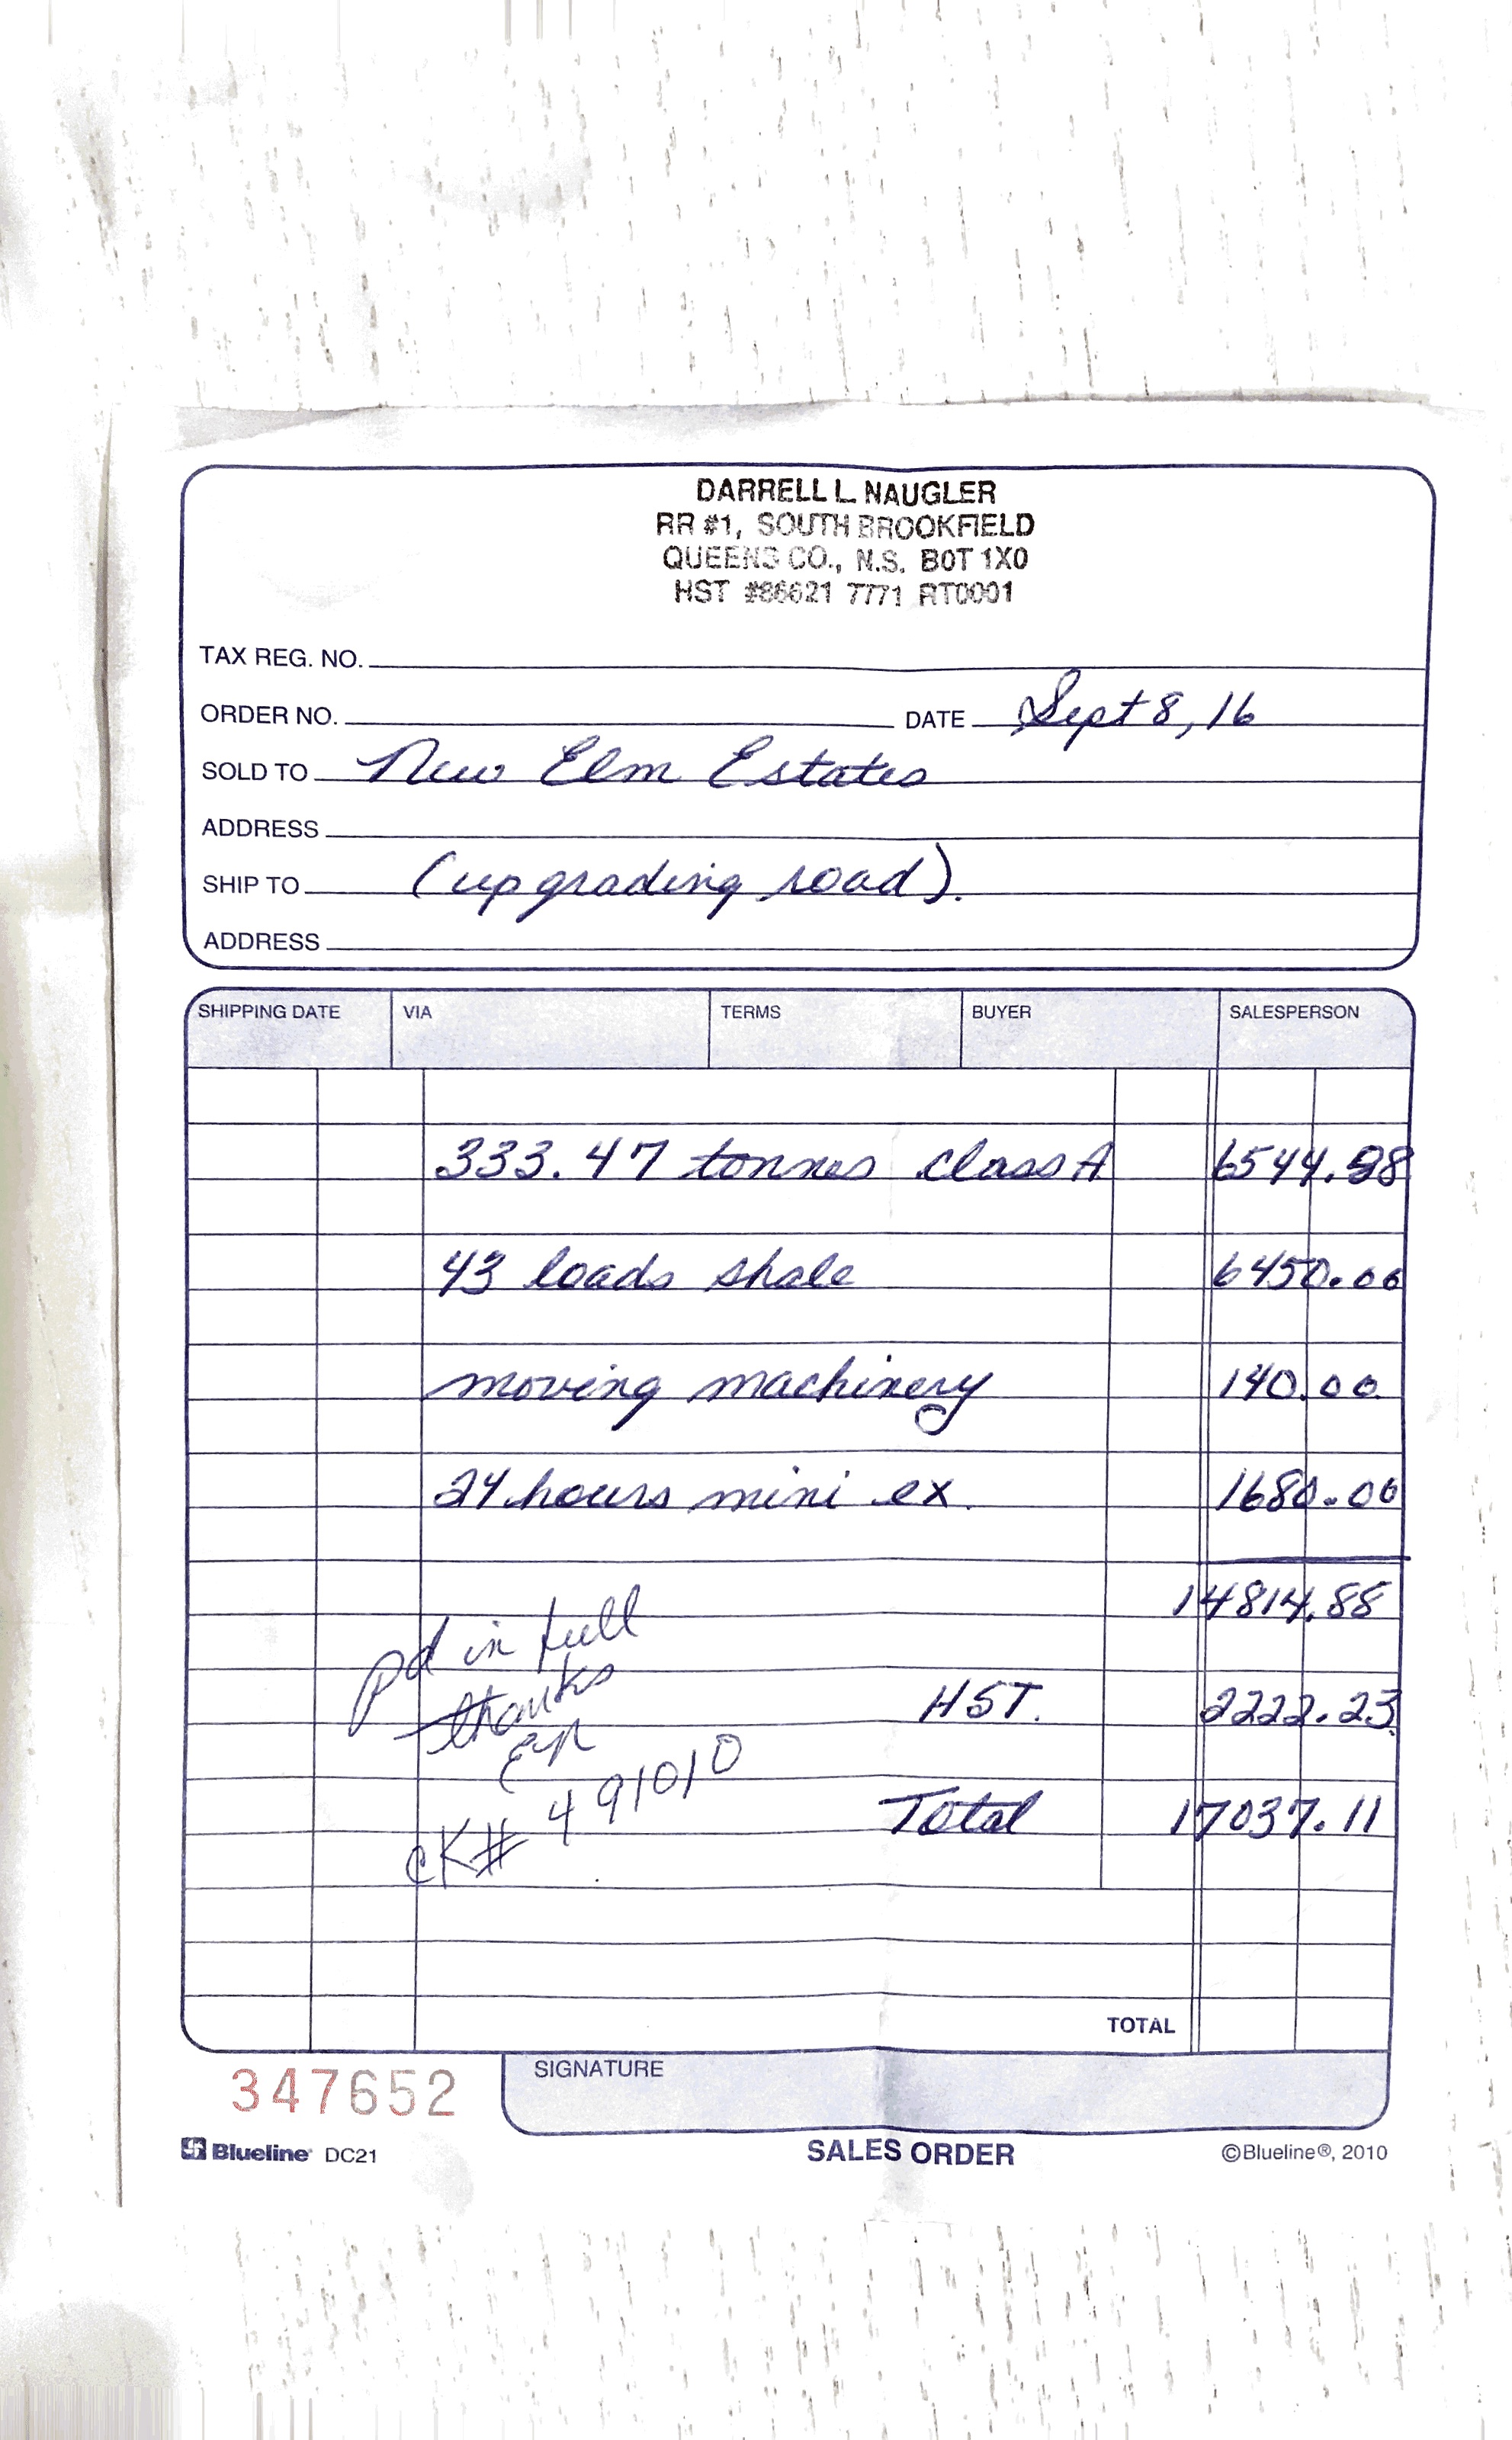 DARRELL L. NAUGLER
RR #1, SOUTH BROOKFIELD
QUEENS CO., N.S. B0T 1X0
HST #86621 7771 RT0001
TAX REG. NO.
ORDER NO. DATE Sept 8, 16
SOLD TO New Elm Estates
ADDRESS
SHIP TO (upgrading road).
ADDRESS
SHIPPING DATE VIA TERMS BUYER SALESPERSON
333.47 tonnes class A 6544.88
43 loads shale 6450.00
moving machinery 140.00
24 hours mini ex. 1680.00
14814.88
pd in full
thanks
HST. 2222.23
CK# 491010
Total 17037.11
TOTAL
347652
SIGNATURE
Blueline DC21 SALES ORDER ©Blueline®, 2010